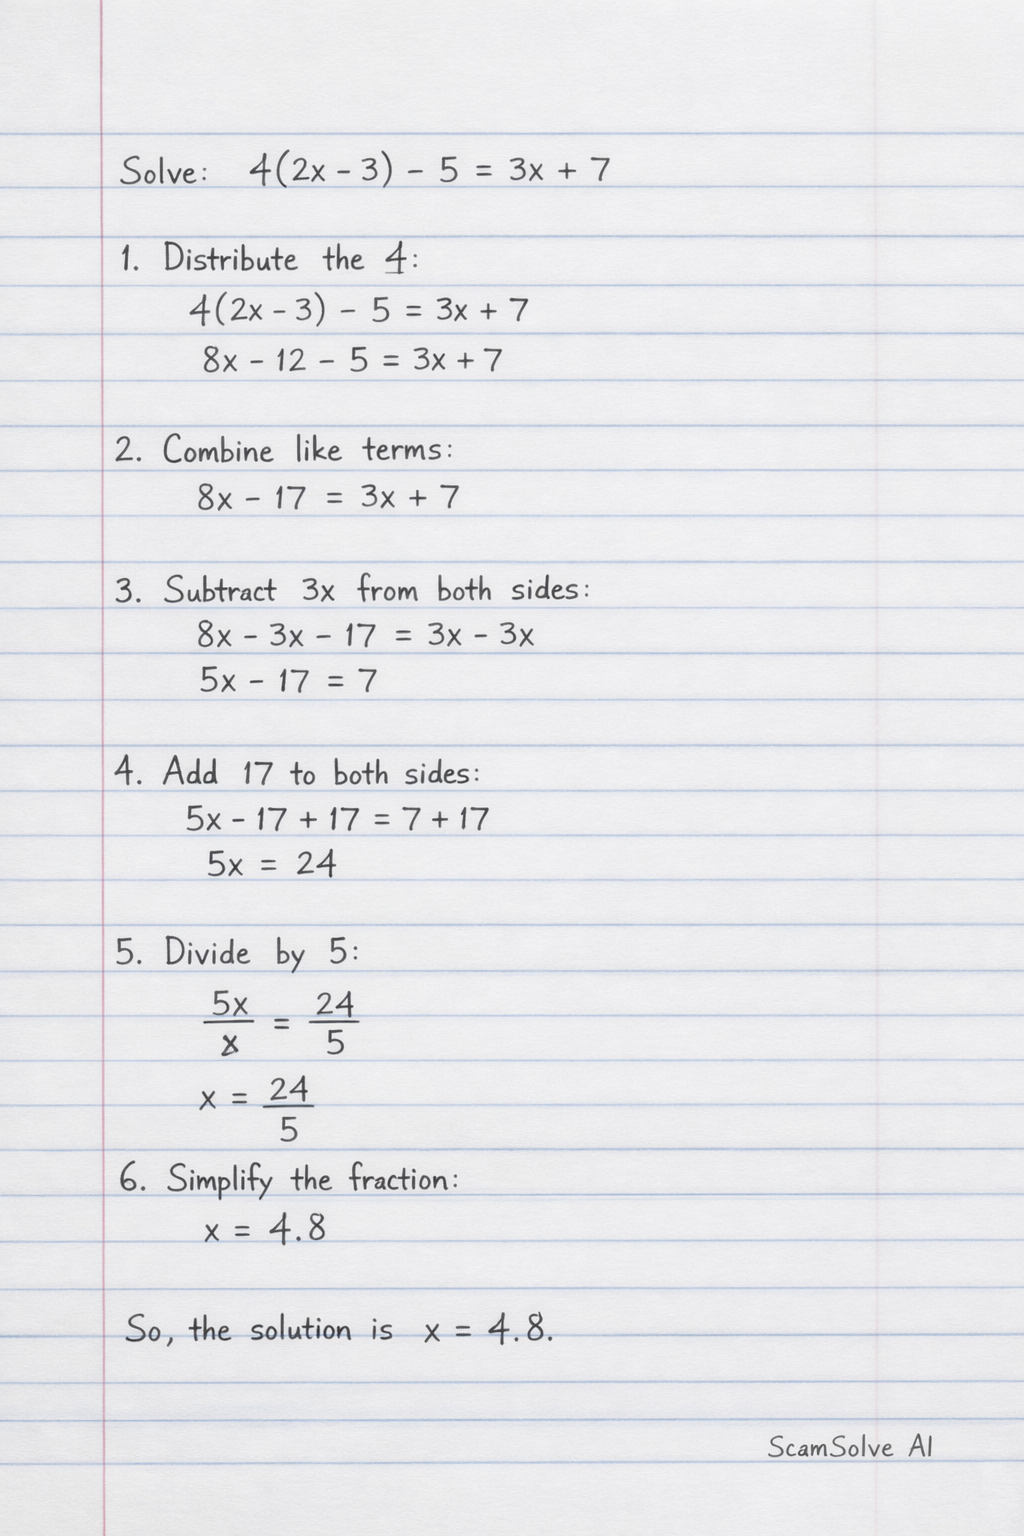 Solve: 4(2x - 3) - 5 = 3x + 7
1. Distribute the 4:
4(2x - 3) - 5 = 3x + 7
8x - 12 - 5 = 3x + 7
2. Combine like terms:
8x - 17 = 3x + 7
3. Subtract 3x from both sides:
8x - 3x - 17 = 3x - 3x
5x - 17 = 7
4. Add 17 to both sides:
5x - 17 + 17 = 7 + 17
5x = 24
5. Divide by 5:
5x/x = 24/5
x = 24/5
6. Simplify the fraction:
x = 4.8
So, the solution is x = 4.8.
ScamSolve AI